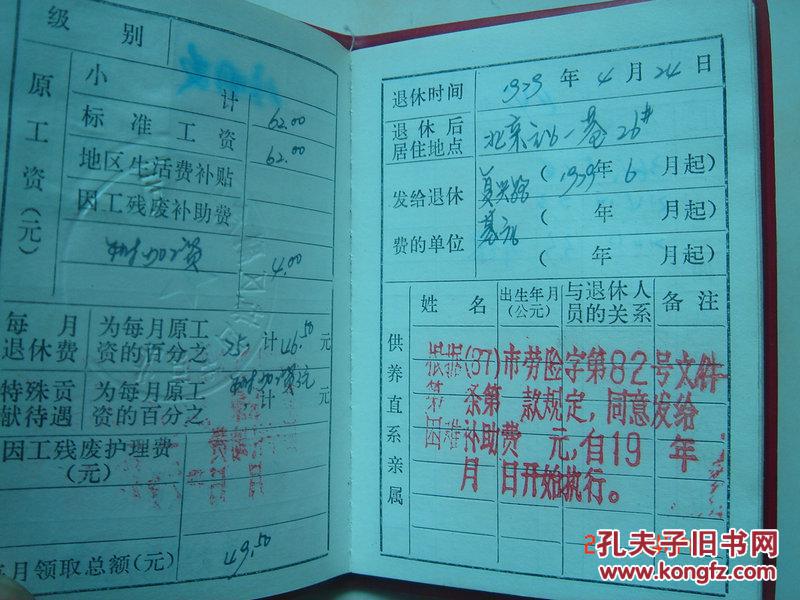 级别
原工资(元)
小计 62.00
标准工资 62.00
地区生活费补贴
因工残废补助费
附加工资 4.00
每月退休费
为每月原工资的百分之 75 计 46.50 元
特殊贡献待遇
为每月原工资的百分之 计 元
因工残废护理费(元)
月领取总额(元) 49.50
退休时间 1979 年 4 月 24 日
退休后居住地点 北京
发给退休费的单位
复兴路 (1979年 6 月起)
( 年 月起)
( 年 月起)
供养直系亲属
姓名
出生年月(公元)
与退休人员的关系
备注
根据(87)市劳险字第82号文件
第 条第 款规定,同意发给
困难补助费 元,自19 年
月 日开始执行。
孔夫子旧书网
www.kongfz.com